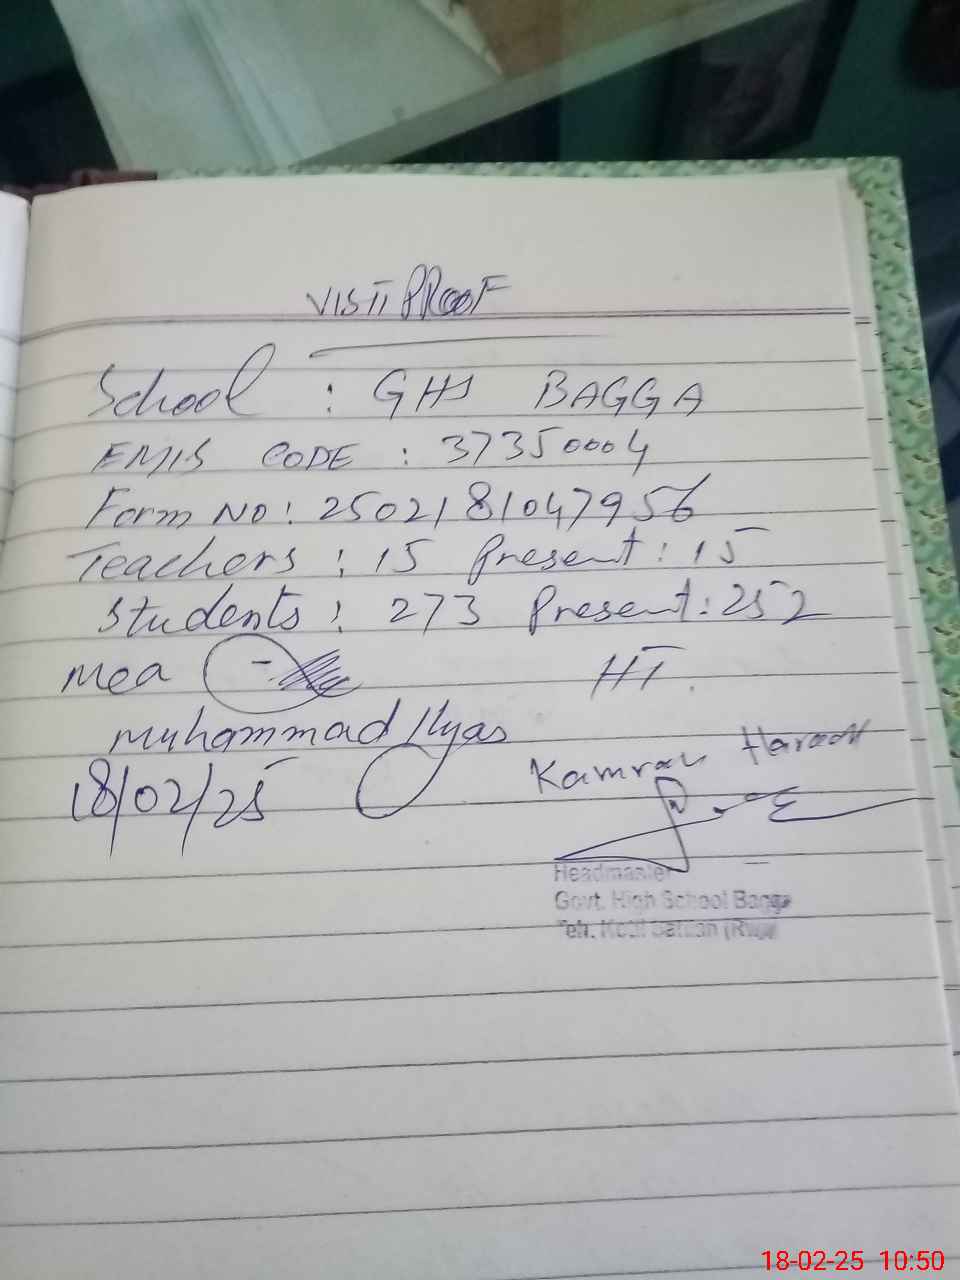 VISIT PROOF
School : GHS BAGGA
EMIS CODE : 37350004
Form NO: 2502181047956
Teachers : 15 Present : 15
Students : 273 Present : 252
Mea
HT.
Muhammad Ilyas
Kamran Haroon
18/02/25
Headmaster
Govt. High School Bagga
Teh. Kotli Sattian (Rwp)
18-02-25 10:50